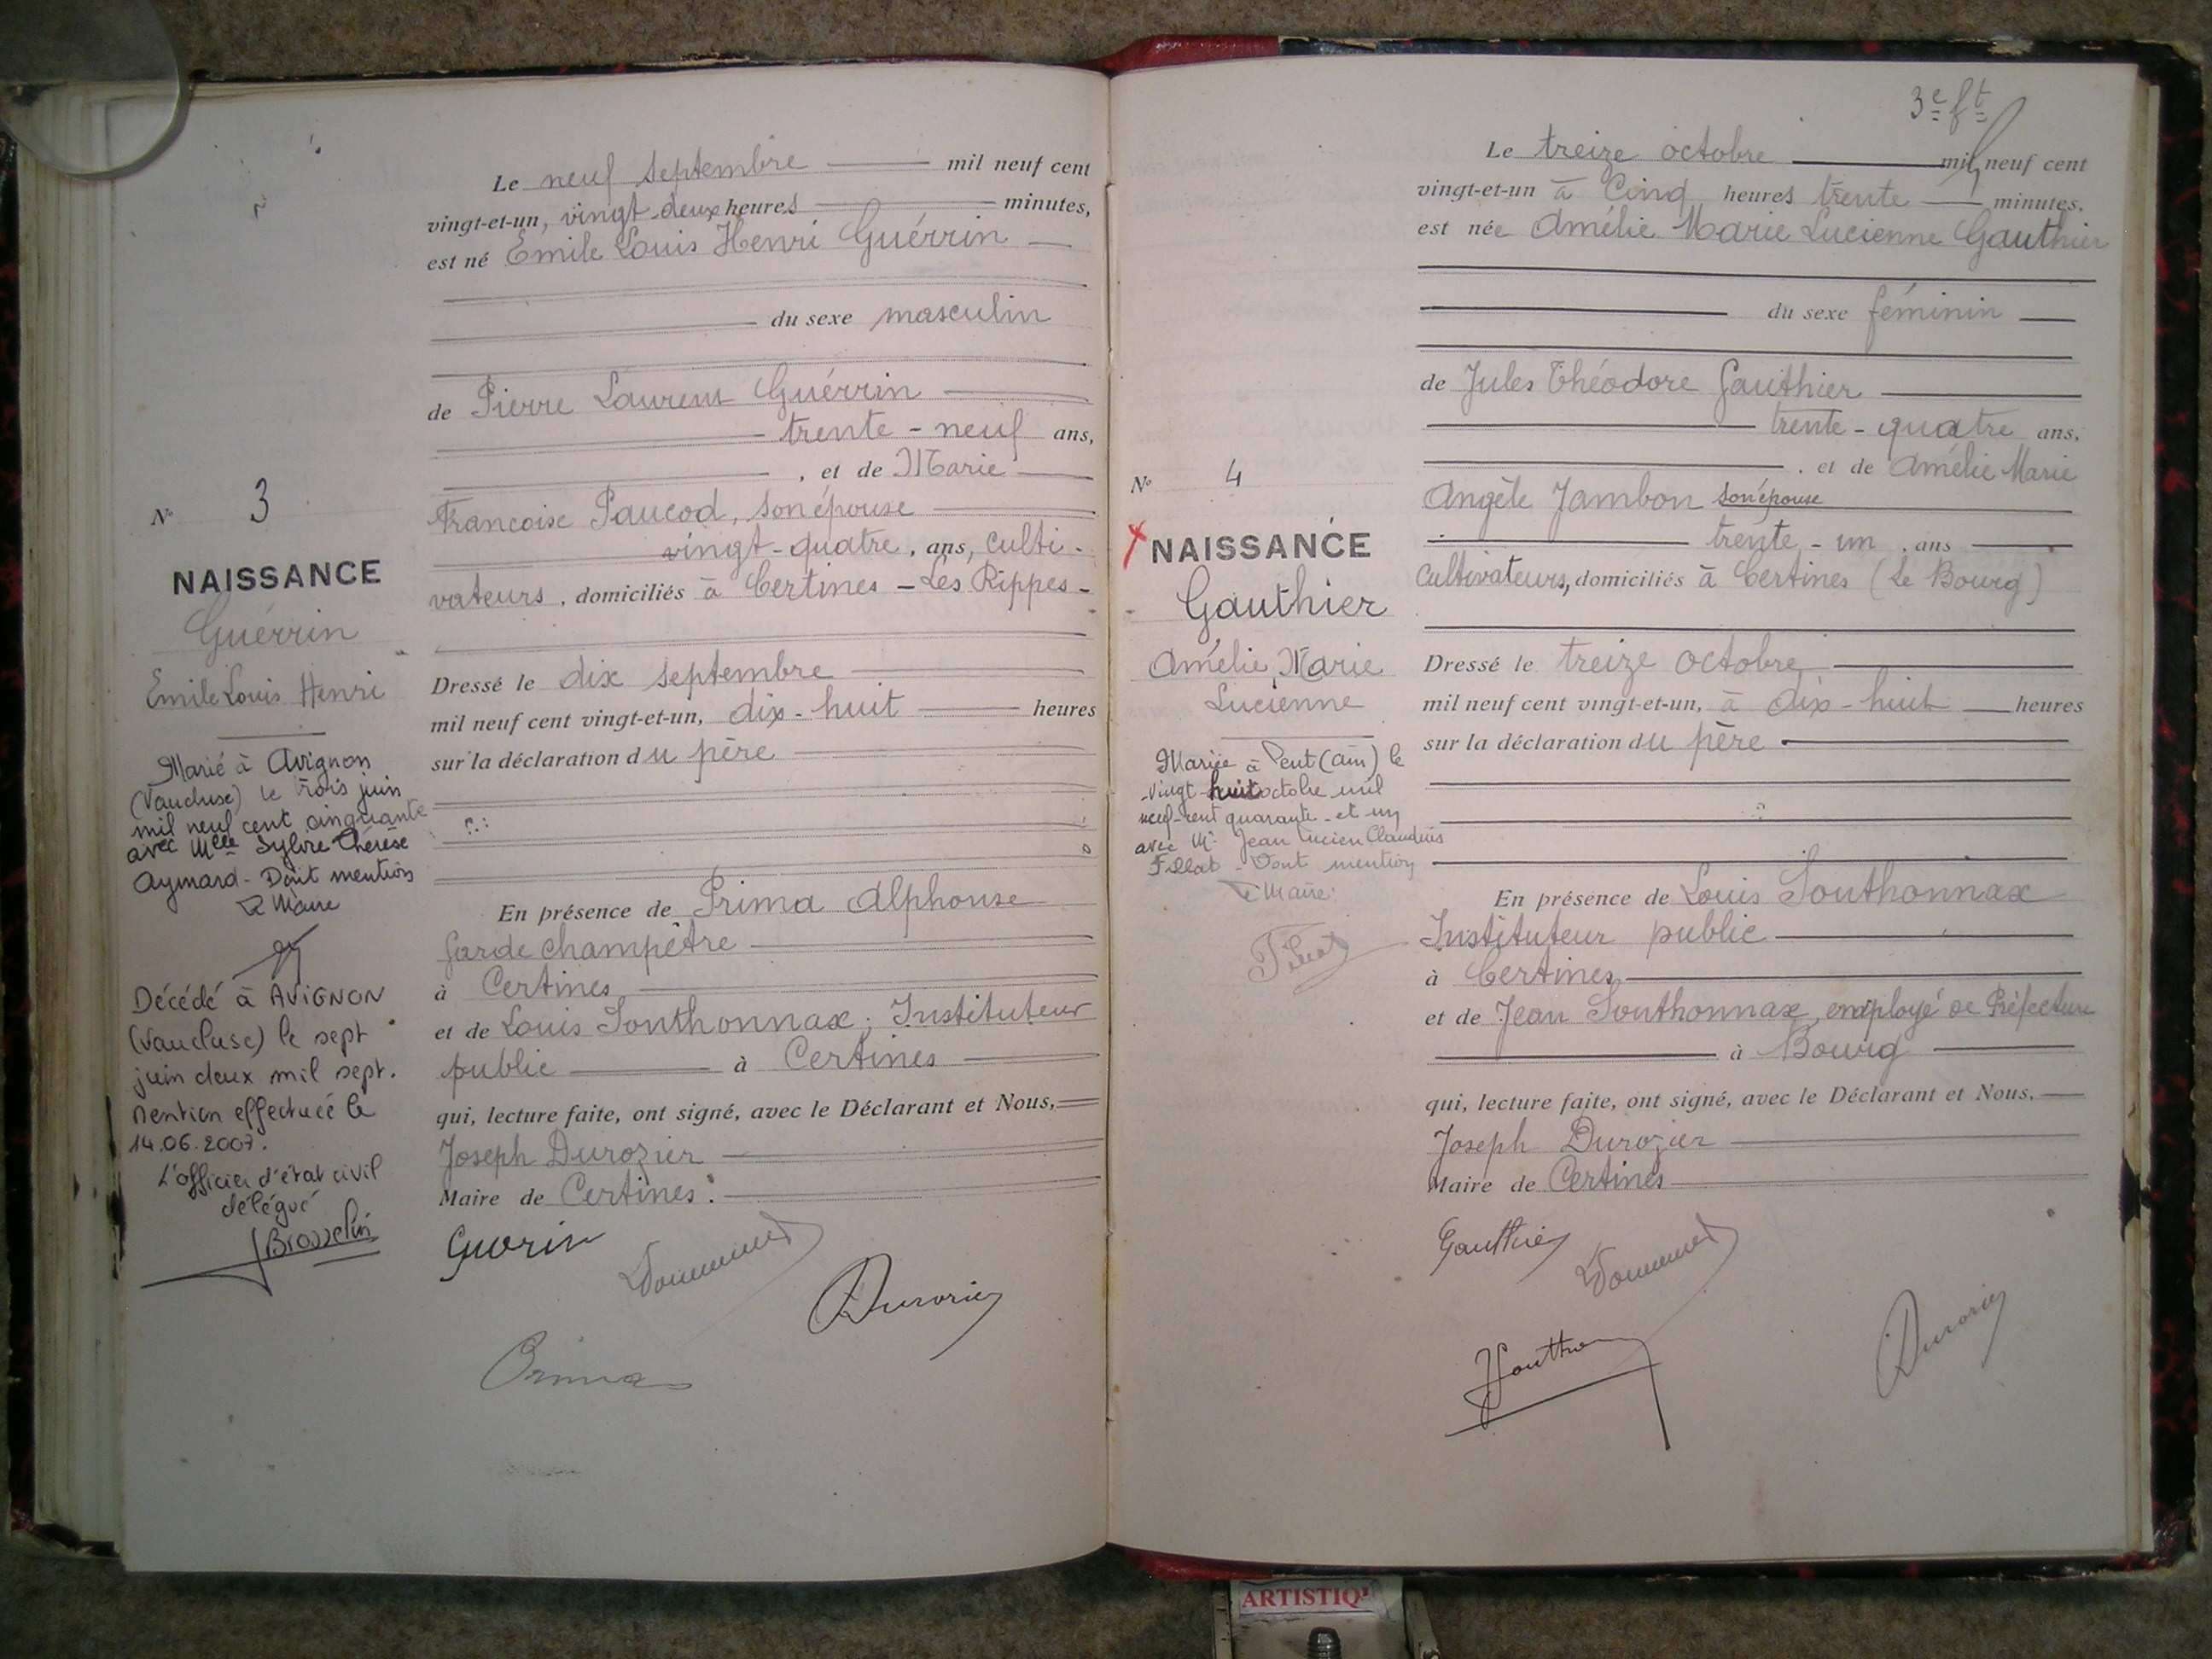 Le neuf septembre mil neuf cent
vingt-et-un, vingt-deux heures minutes,
est né Emile Louis Henri Guérrin
du sexe masculin
de Pierre Laurent Guérrin
trente-neuf ans,
, et de Marie
Francoise Paucod, son épouse
vingt-quatre, ans, culti-
vateurs, domiciliés à Certines - Les Rippes -
Dressé le dix septembre
mil neuf cent vingt-et-un, dix-huit heures
sur la déclaration du père
En présence de Prima Alphonse
garde champêtre
à Certines
et de Louis Sonthonnax, Instituteur
public à Certines
qui, lecture faite, ont signé, avec le Déclarant et Nous,
Joseph Durozier
Maire de Certines.
Guérin
Prima
Durozier
N° 3
NAISSANCE
Guérrin
Emile Louis Henri
Marié à Avignon
(Vaucluse) le trois juin
mil neuf cent cinquante
avec Mlle Sylvie Thérèse
Aymard - Dont mention
Le Maire
Décédé à AVIGNON
(Vaucluse) le sept
juin deux mil sept.
Mention effectuée le
14.06.2007.
L'officier d'état civil
délégué
3e ft
Le treize octobre mil neuf cent
vingt-et-un à Cinq heures trente minutes.
est née Amélie Marie Lucienne Gauthier
du sexe féminin
de Jules Théodore Gauthier
trente-quatre ans,
. et de Amélie Marie
Angèle Jambon son épouse
trente-un, ans
cultivateurs, domiciliés à Certines (Le Bourg)
Dressé le treize octobre
mil neuf cent vingt-et-un, à dix-huit heures
sur la déclaration du père
En présence de Louis Sonthonnax
Instituteur public
à Certines
et de Jean Sonthonnax, employé de Préfecture
à Bourg
qui, lecture faite, ont signé, avec le Déclarant et Nous,
Joseph Durozier
Maire de Certines
Gauthier
Durozier
N° 4
NAISSANCE
Gauthier
Amélie, Marie
Lucienne
Mariée à (Ain) le
vingt-huit octobre mil
neuf-cent quarante-et-un
avec Mr Jean Lucien Claudius
Dont mention
Le Maire:
ARTISTIQ